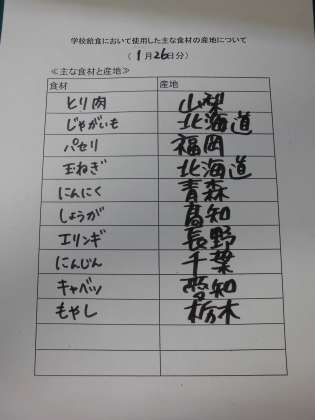 学校給食において使用した主な食材の産地について
(1月26日分)
≪主な食材と産地≫
食材 産地
とり肉 山梨
じゃがいも 北海道
パセリ 福岡
玉ねぎ 北海道
にんにく 青森
しょうが 高知
エリンギ 長野
にんじん 千葉
キャベツ 愛知
もやし 栃木